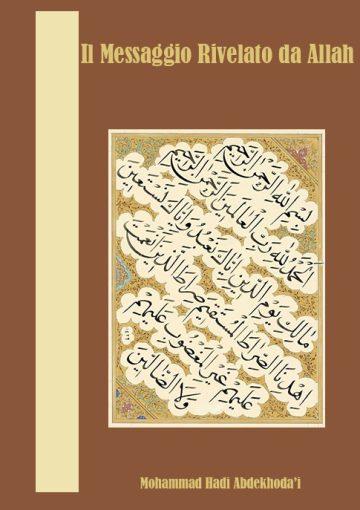 Il Messaggio Rivelato da Allah
بِسْمِ اللهِ الرَّحْمٰنِ الرَّحِيمِ
اَلْحَمْدُ لِلّٰهِ رَبِّ الْعَالَمِينَ الرَّحْمٰنِ الرَّحِيمِ
مَالِكِ يَوْمِ الدِّينِ اِيَّاكَ نَعْبُدُ وَاِيَّاكَ نَسْتَعِينُ
اِهْدِنَا الصِّرَاطَ الْمُسْتَقِيمَ صِرَاطَ الَّذِينَ اَنْعَمْتَ
عَلَيْهِمْ غَيْرِ الْمَغْضُوبِ عَلَيْهِمْ
وَلَا الضَّالِّينَ
Mohammad Hadi Abdekhoda'i